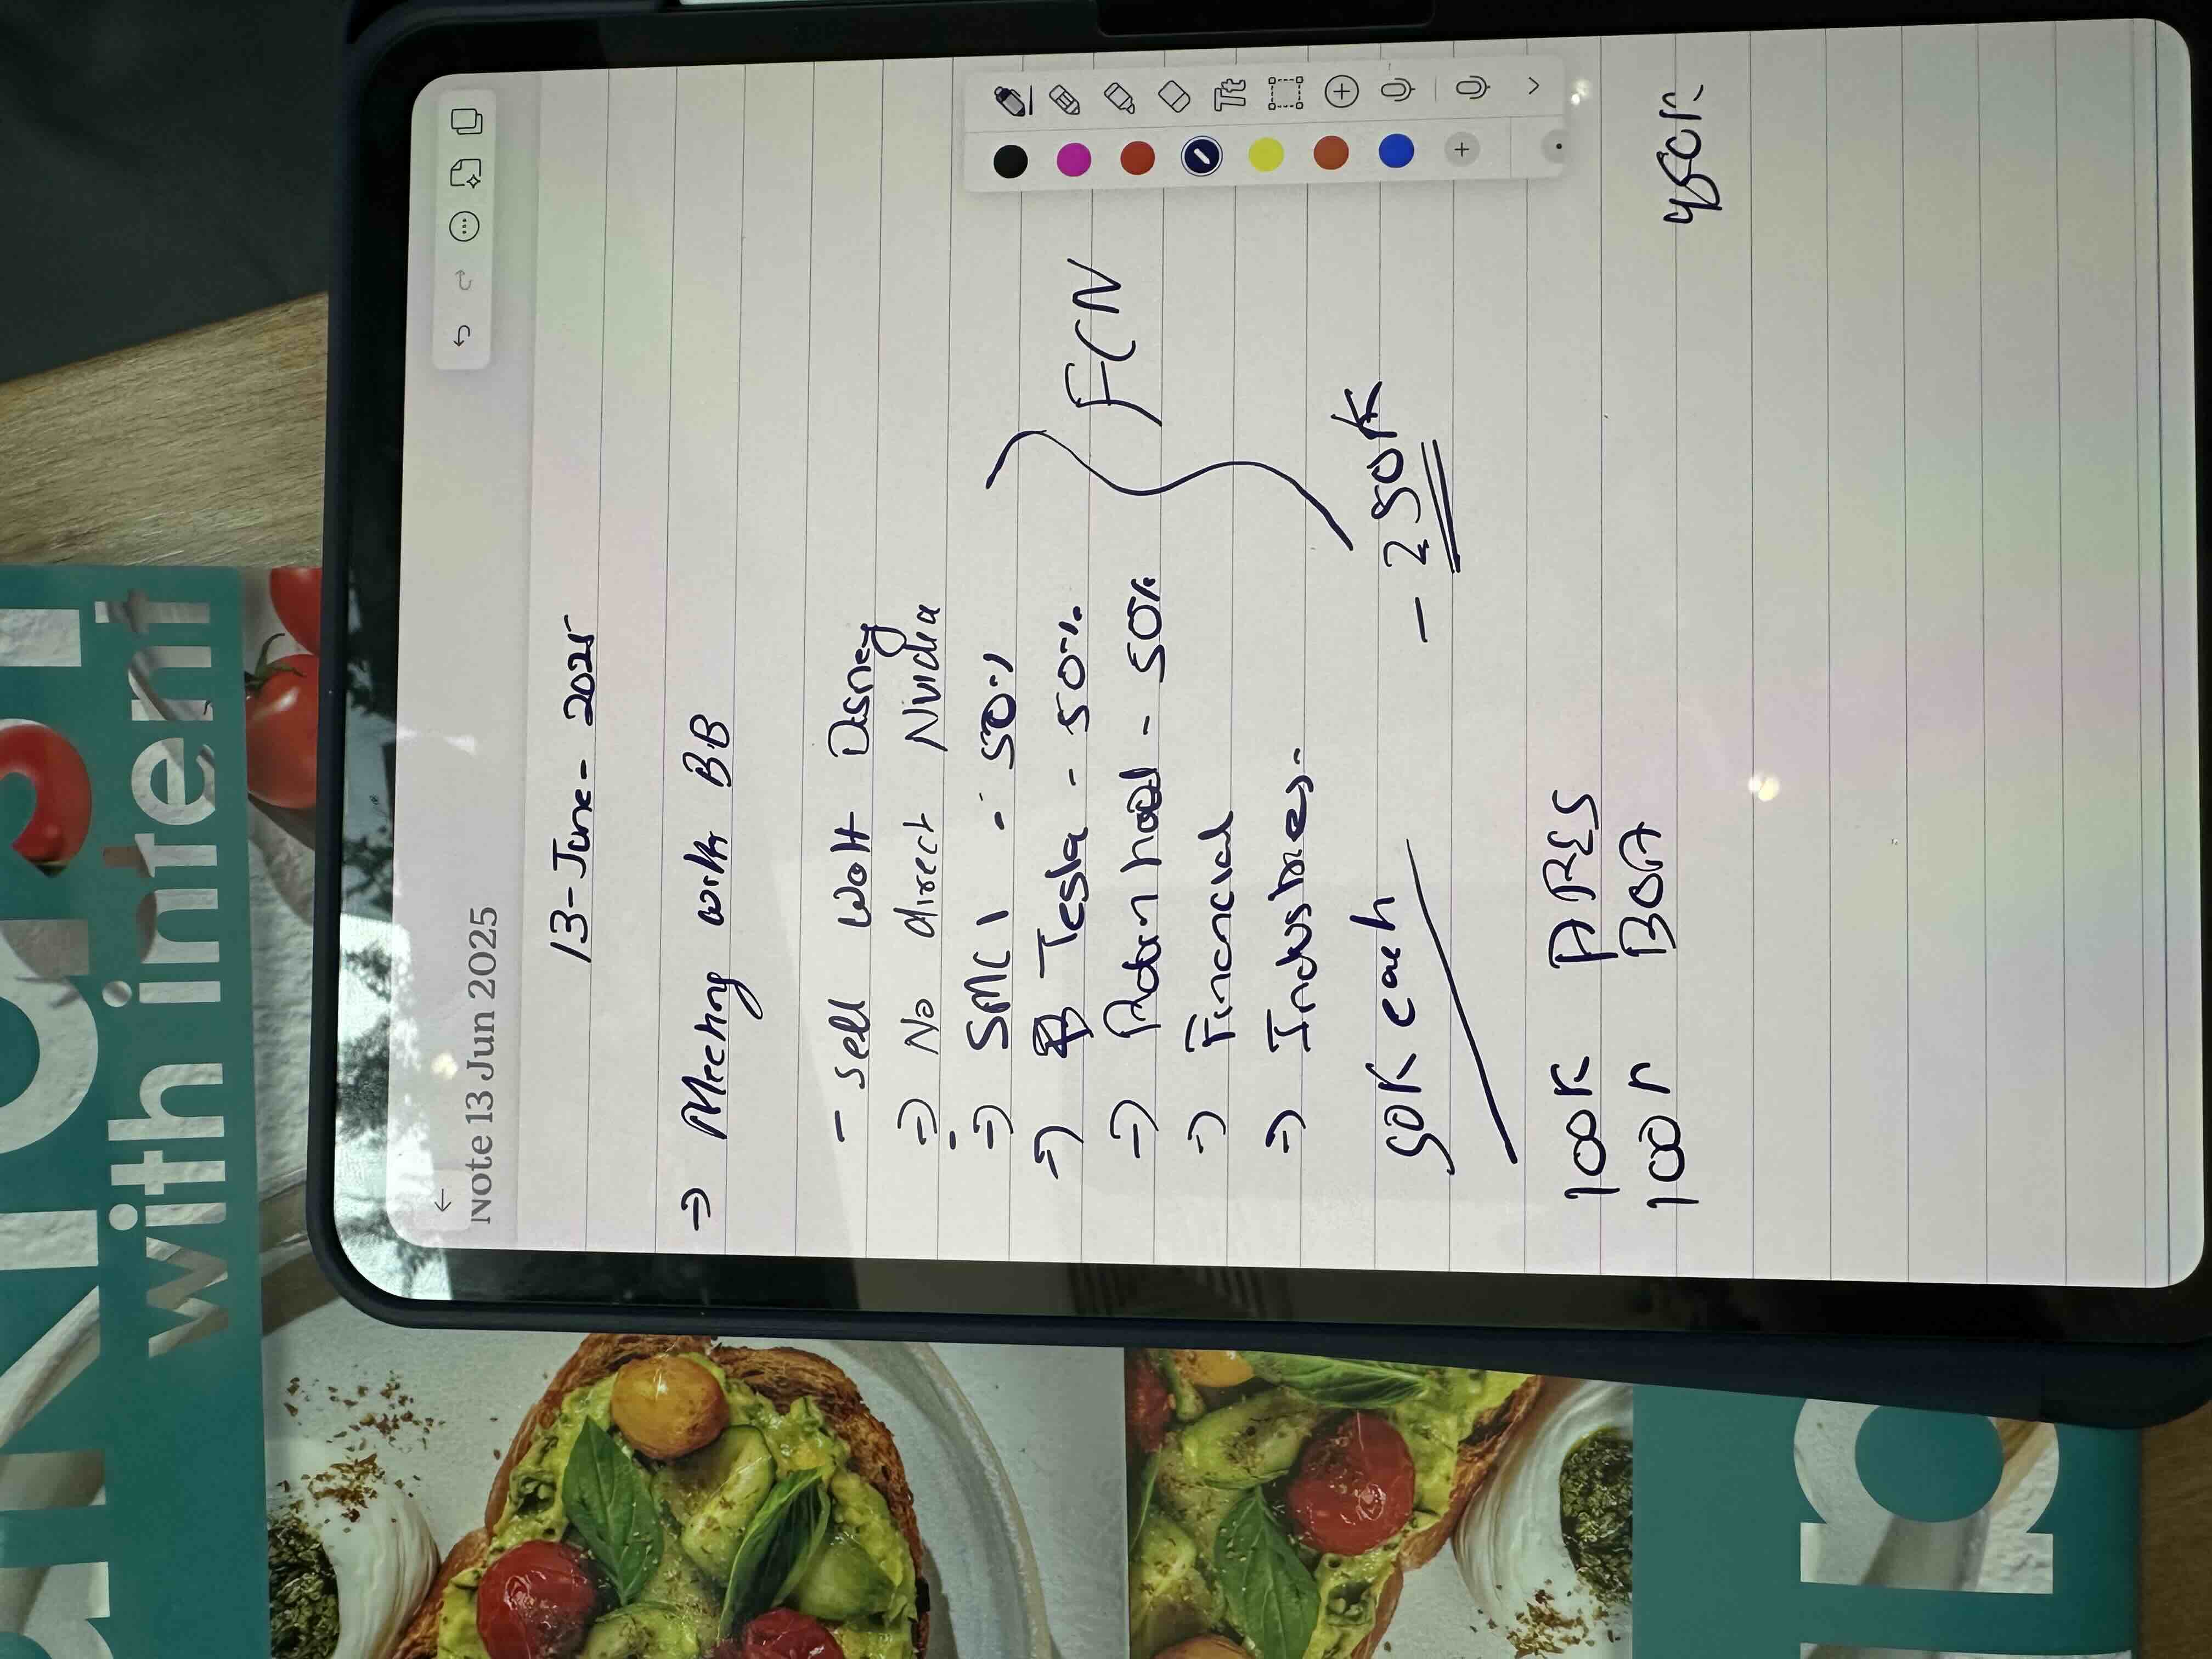 Note 13 Jun 2025
13-June-2025
⇒ Meeting with BB
- sell Walt Disney
⇒ No direct Nvidia
⇒ SMCI - 50%
⇒ Tesla - 50%
⇒ Robinhood - 50%
⇒ Financial
⇒ Industries.
FCN
50K each - 250K
100K ARES
100K BOA
450K
Tt
with intent